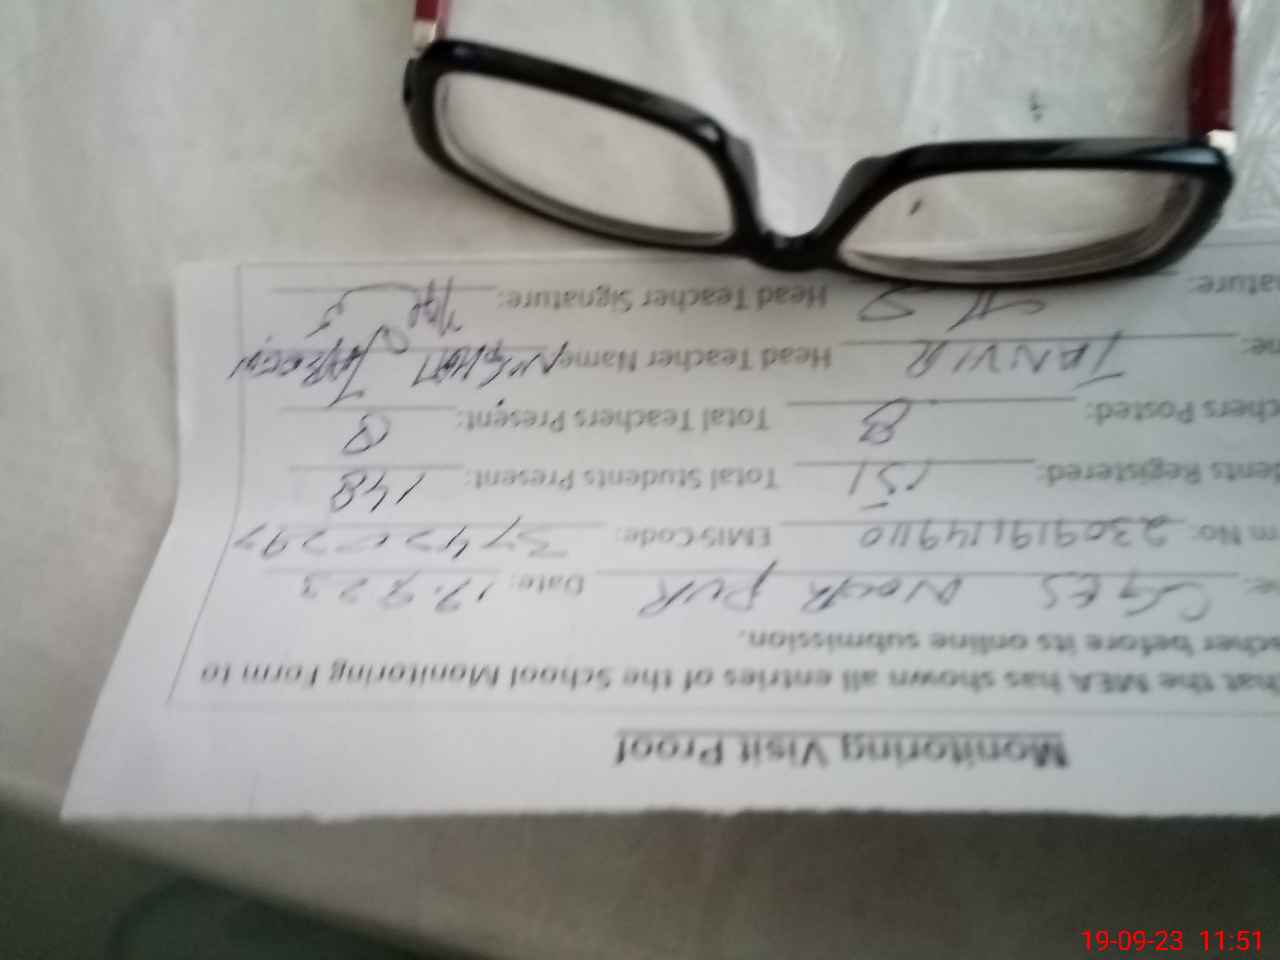 Monitoring Visit Proof
hat the MEA has shown all entries of the School Monitoring Form to
cher before its online submission.
e: CGES NOOR PUR Date:
m No: 23091911149110 EMIS Code:
dents Registered: 151 Total Students Present: 148
chers Posted: 8 Total Teachers Present: 8
me: TANVIR Head Teacher Name
ature: Head Teacher Signature:
19-09-23 11:51